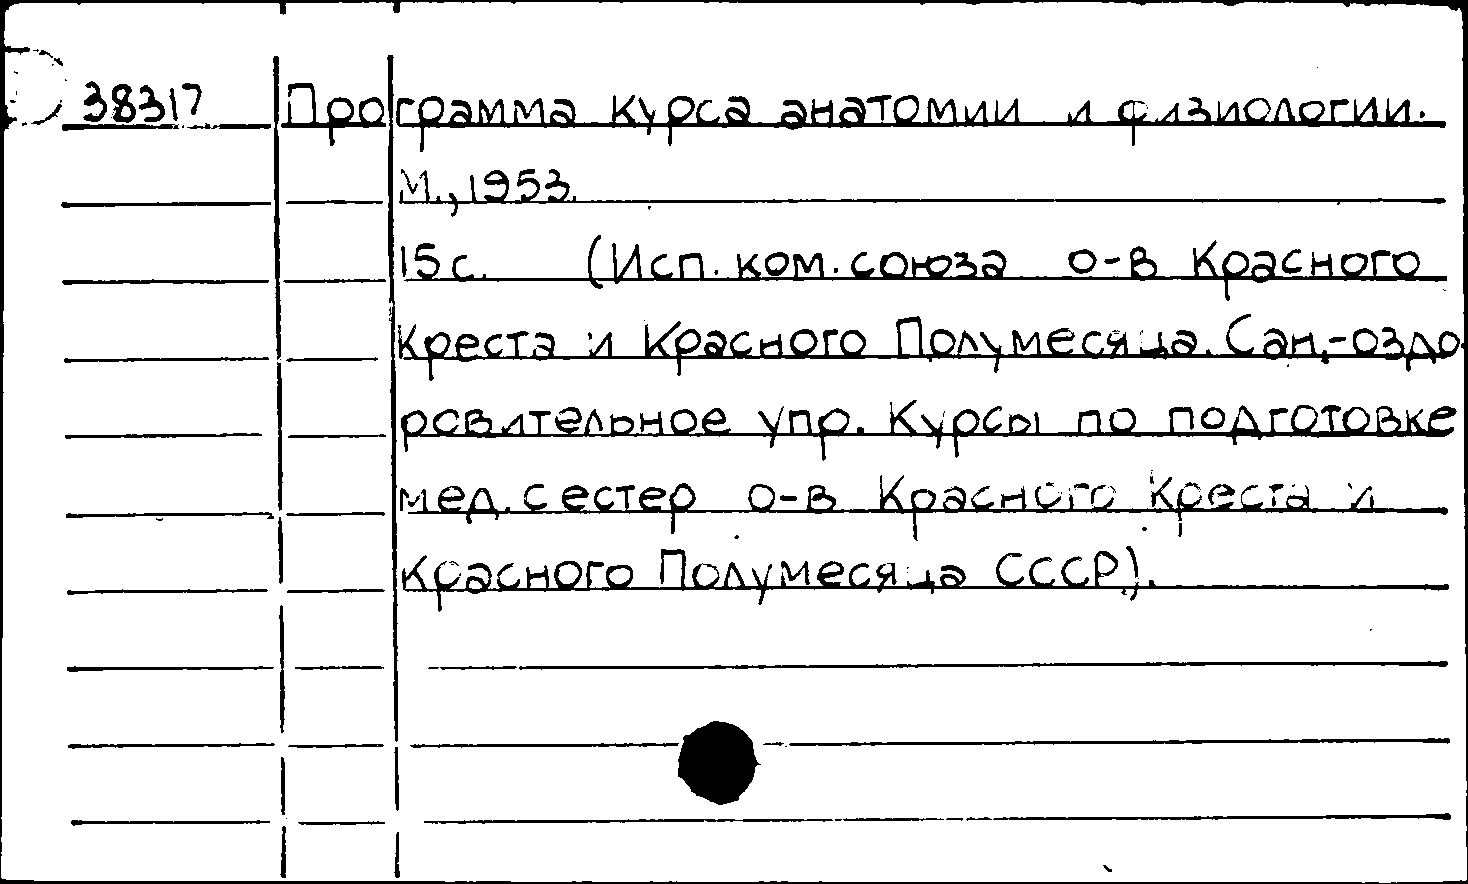 38317 Программа курса анатомии и физиологии.
М., 1953.
15 с. (Исп. ком. союза о-в Красного
Креста и Красного Полумесяца. Сан.-оздо-
ровительное упр. Курсы по подготовке
мед. сестер о-в Красного Креста и
Красного Полумесяца СССР).